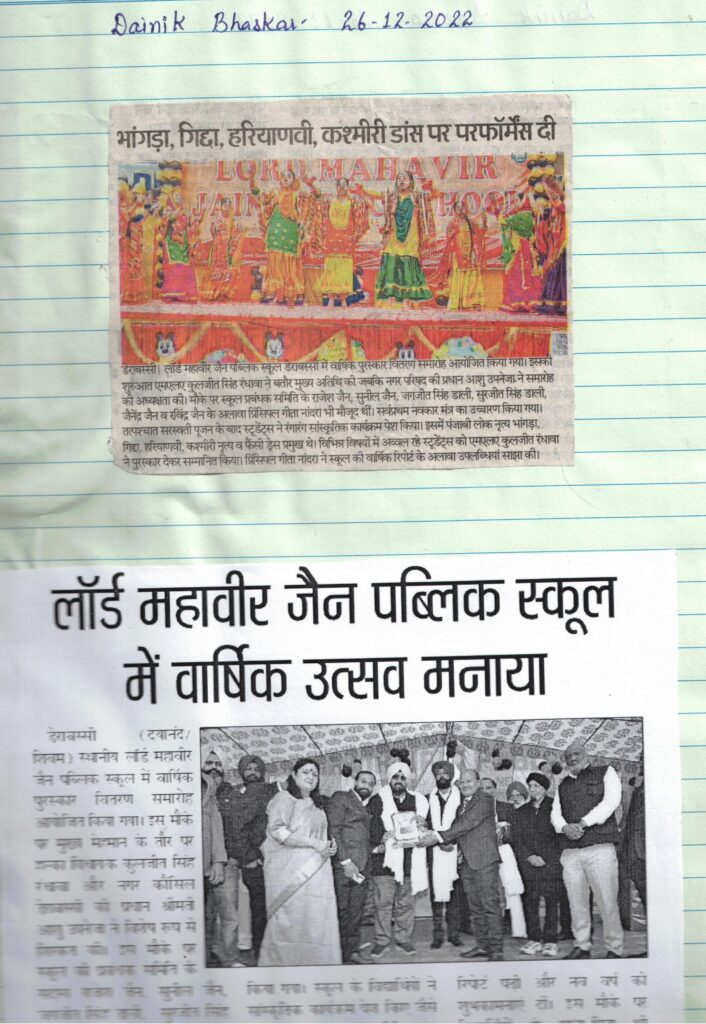 Dainik Bhaskar- 26-12-2022
भांगड़ा, गिद्दा, हरियाणवी, कश्मीरी डांस पर परफॉर्मेंस दी
LORD MAHAVIR
JAIN
डेराबस्सी। लॉर्ड महावीर जैन पब्लिक स्कूल डेराबस्सी में वार्षिक पुरस्कार वितरण समारोह आयोजित किया गया। इसकी
शुरुआत एमएलए कुलजीत सिंह रंधावा ने बतौर मुख्य अतिथि की जबकि नगर परिषद की प्रधान आशु उपनेजा ने समारोह
की अध्यक्षता की। मौके पर स्कूल प्रबंधक समिति के राजेश जैन, सुनील जैन, जगजीत सिंह डाली, सुरजीत सिंह डाली,
जैनेंद्र जैन व रविंद्र जैन के अलावा प्रिंसिपल गीता नांदरा भी मौजूद थीं। सर्वप्रथम नवकार मंत्र का उच्चारण किया गया।
तत्पश्चात सरस्वती पूजन के बाद स्टूडेंट्स ने रंगारंग सांस्कृतिक कार्यक्रम पेश किया। इसमें पंजाबी लोक नृत्य भांगड़ा,
गिद्दा, हरियाणवी, कश्मीरी नृत्य व फैंसी ड्रेस प्रमुख थे। विभिन्न विषयों में अव्वल रहे स्टूडेंट्स को एमएलए कुलजीत रंधावा
ने पुरस्कार देकर सम्मानित किया। प्रिंसिपल गीता नांदरा ने स्कूल की वार्षिक रिपोर्ट के अलावा उपलब्धियां साझा की।
लॉर्ड महावीर जैन पब्लिक स्कूल
में वार्षिक उत्सव मनाया
डेराबस्सी (दयानंद/
शिवम) स्थानीय लॉर्ड महावीर
जैन पब्लिक स्कूल में वार्षिक
पुरस्कार वितरण समारोह
आयोजित किया गया। इस मौके
पर मुख्य मेहमान के तौर पर
हलका विधायक कुलजीत सिंह
रंधावा और नगर कौंसिल
डेराबस्सी की प्रधान श्रीमती
आशु उपनेजा ने विशेष रूप से
शिरकत की। इस मौके पर
स्कूल की प्रबंधक समिति के
राजेश जैन, सुनील जैन,
जगजीत सिंह डाली, सुरजीत सिंह
किया गया। स्कूल के विद्यार्थियों ने
सांस्कृतिक कार्यक्रम पेश किए जैसे
रिपोर्ट पढ़ी और नव वर्ष की
शुभकामनाएं दीं। इस मौके पर